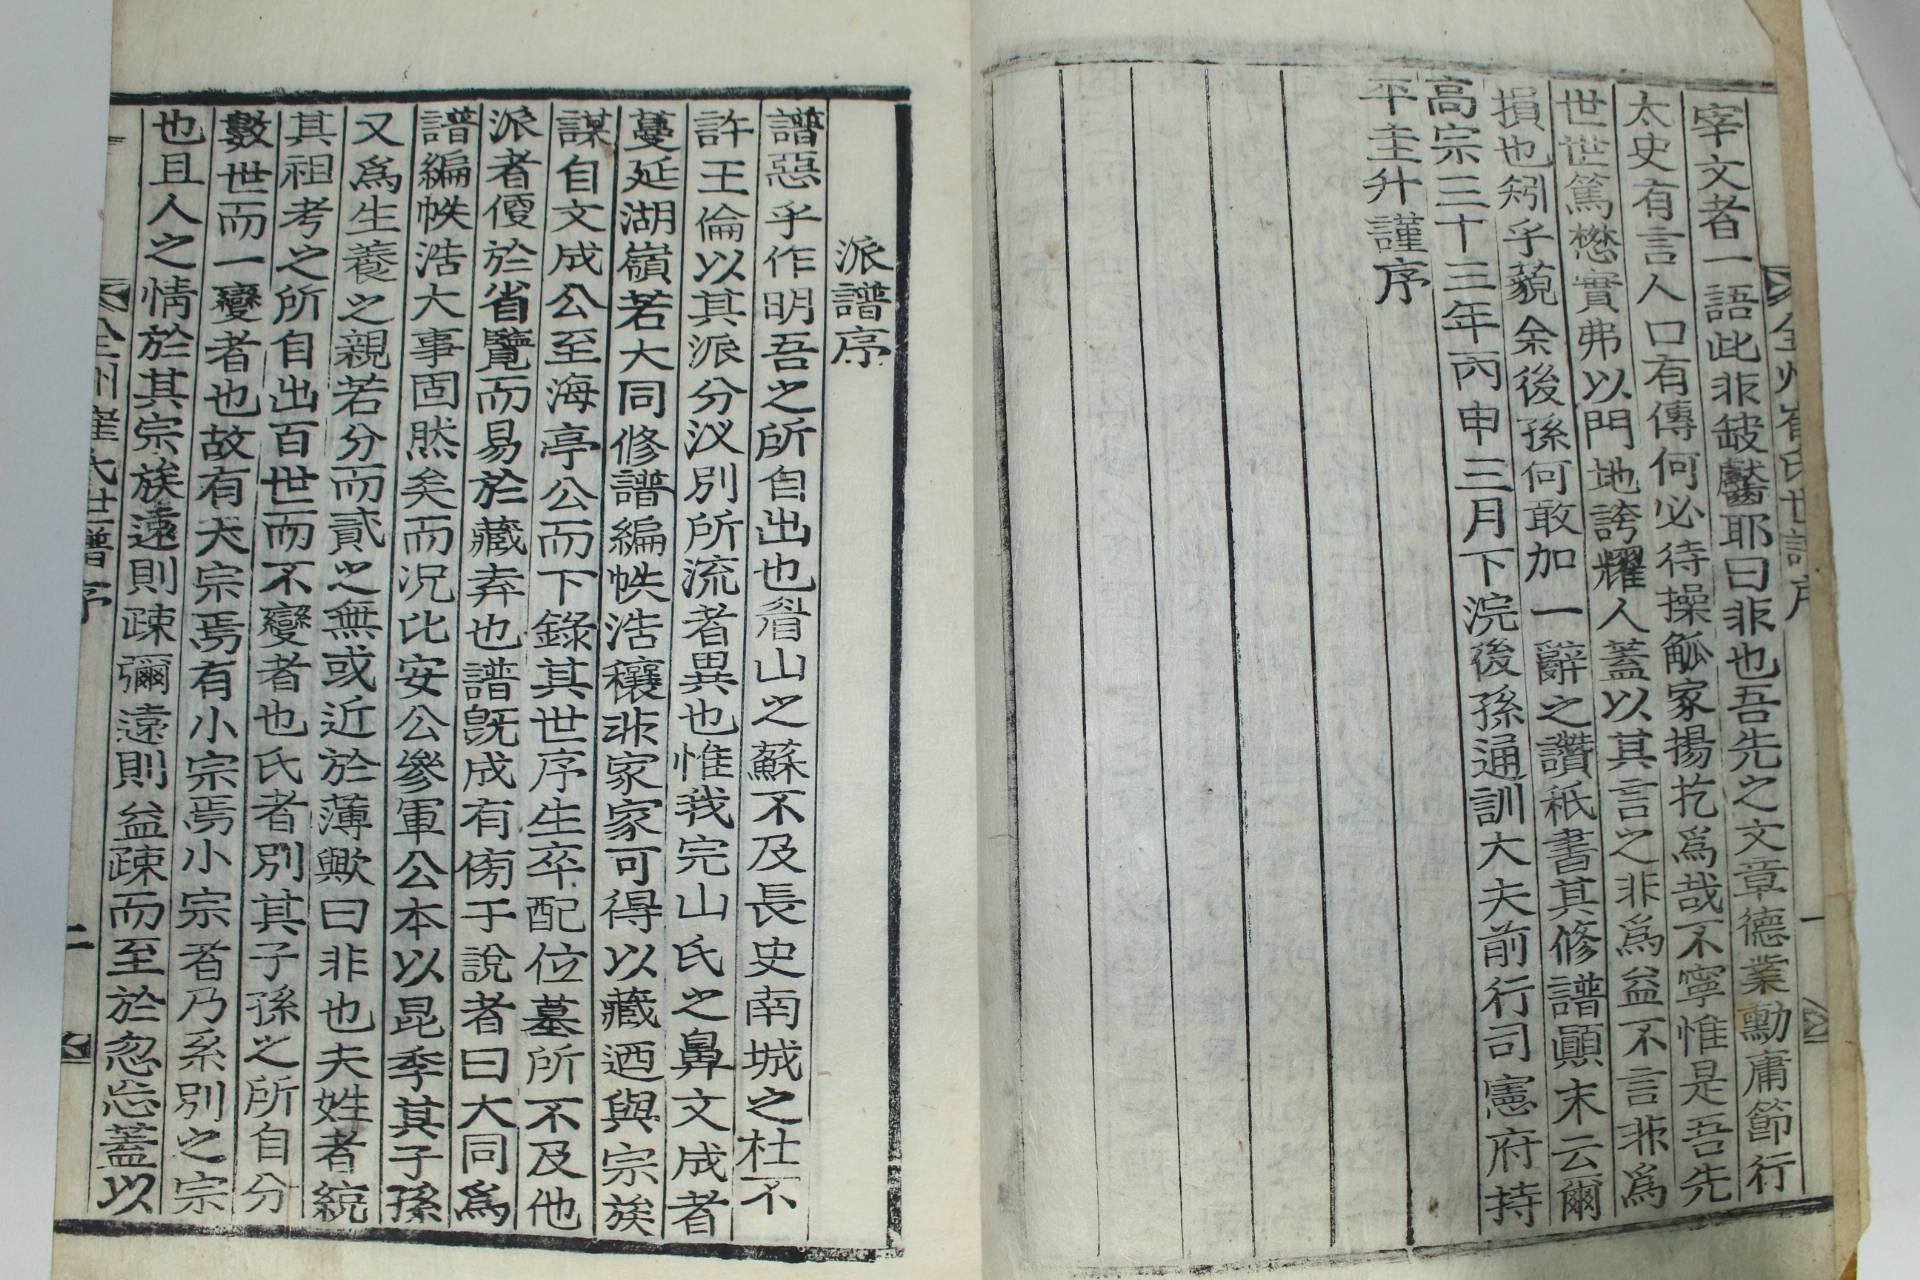 全州崔氏世譜序
一
宰文者一語此非皷獻耶曰非也吾先之文章德業勳庸節行
太史有言人口有傳何必待操觚家揚扢爲哉不寧惟是吾先
世世篤懋實弗以門地誇耀人蓋以其言之非爲益不言非爲
損也矧乎藐余後孫何敢加一辭之讚秪書其修譜顚末云爾
高宗三十三年丙申三月下浣後孫通訓大夫前行司憲府持
平圭升謹序
派譜序
譜惡乎作明吾之所自出也眉山之蘇不及長史南城之杜不
許王倫以其派分汊別所流者異也惟我完山氏之鼻文成者
蔓延湖嶺若大同修譜編帙浩穰非家家可得以藏迺與宗族
謀自文成公至海亭公而下錄其世序生卒配位墓所不及他
派者優於省覽而易於藏弆也譜旣成有傍于說者曰大同爲
譜編帙浩大事固然矣而况比安公參軍公本以昆季其子孫
又爲生養之親若分而貳之無或近於薄歟曰非也夫姓者統
其祖考之所自出百世而不變者也氏者別其子孫之所自分
數世而一變者也故有大宗焉有小宗焉小宗者乃系別之宗
也且人之情於其宗族遠則疎彌遠則益疎而至於忽忘蓋以
全州崔氏世譜序
二